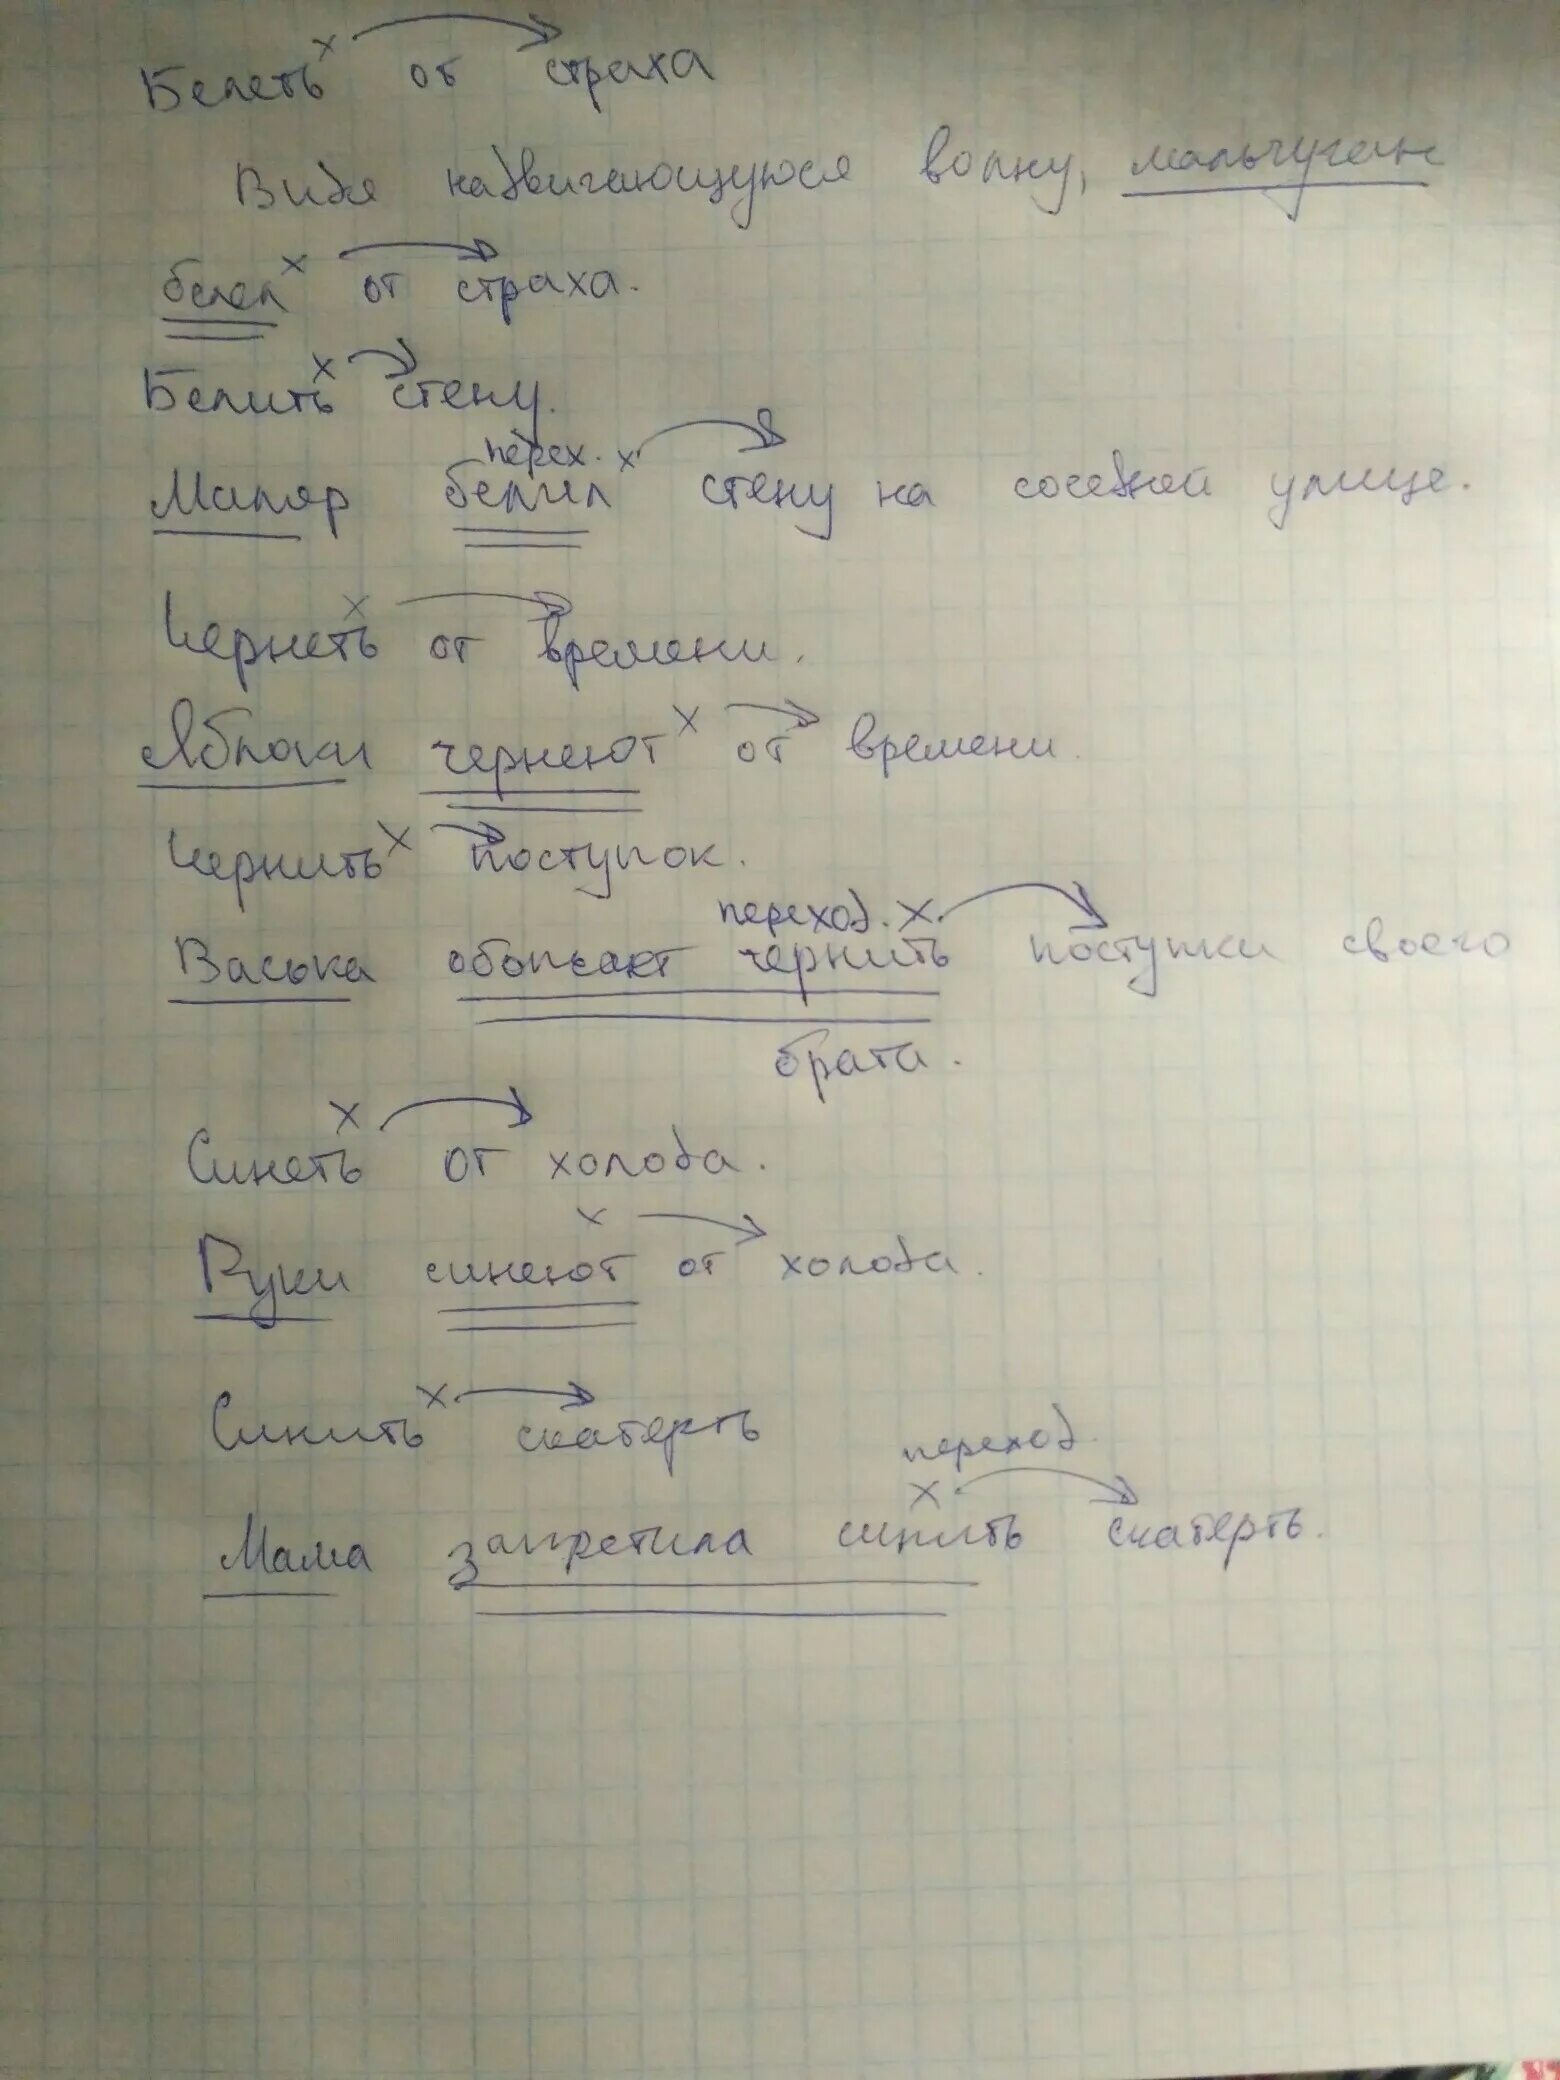 Белеть х от страха
Видя надвигающуюся волну, мальчуган
белел х от страха.
Белить х стену.
перех. х
Маляр белил стену на соседней улице.
х
Чернеть от времени.
Яблоки чернеют х от времени.
Чернить х поступок.
переход. х
Васька обожает чернить поступки своего
брата.
х
Синеть от холода.
х
Руки синеют от холода.
Синить х скатерть
переход.
х
Мама запретила синить скатерть.